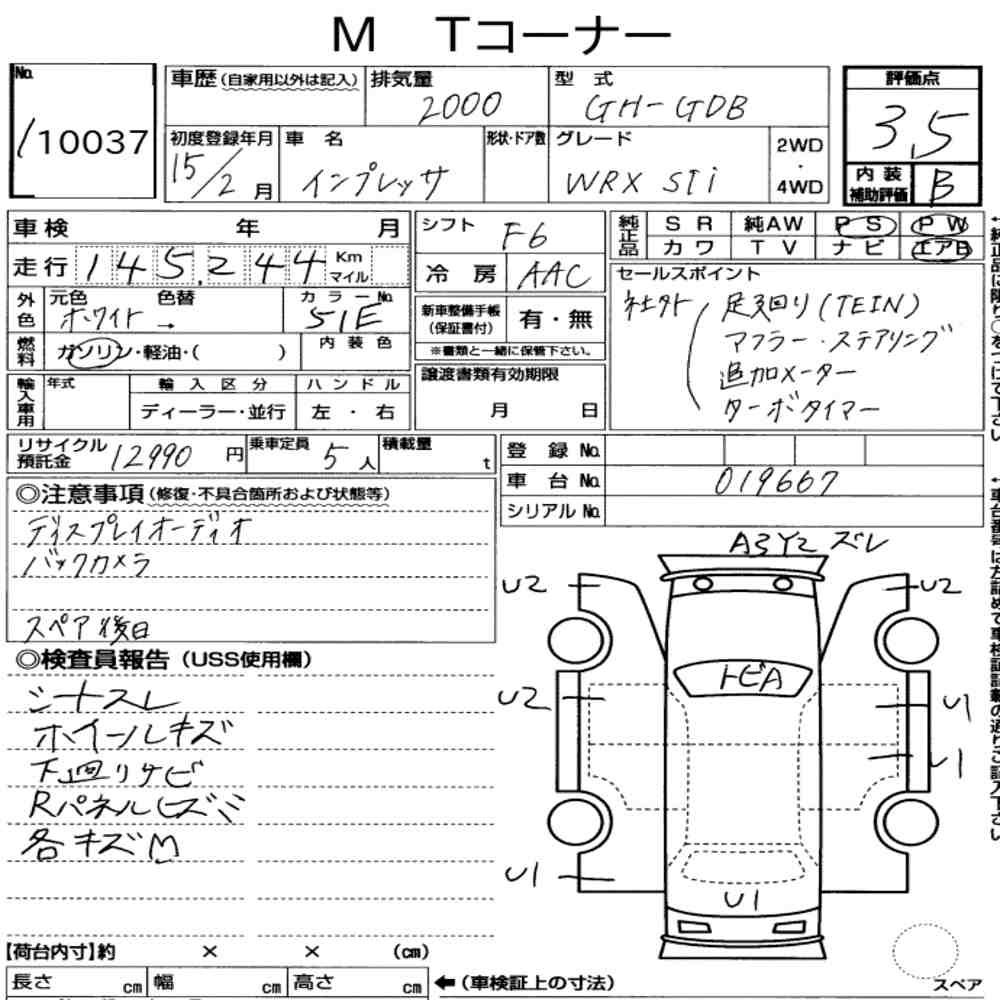 M Tコーナー
No.
/10037
車歴(自家用以外は記入)
排気量
2000
型 式
GH-GDB
評価点
3.5
初度登録年月
15/2月
車 名
インプレッサ
形状・ドア数
グレード
WRX STi
2WD
・
4WD
内 装
補助評価
B
車検 年 月
シフト
F6
純正品
SR 純AW PS PW
カワ TV ナビ エアB
走行 145,244 Km
マイル
冷 房
AAC
セールスポイント
社外 足回り(TEIN)
マフラー・ステアリング
追加メーター
ターボタイマー
外色
元色 色替
ホワイト →
カラーNo.
51E
新車整備手帳
(保証書付)
有・無
※書類と一緒に保管下さい。
燃料
ガソリン・軽油・( )
内 装 色
輸入車用
年式
輸 入 区 分
ハ ン ド ル
ディーラー・並行
左 ・ 右
譲渡書類有効期限
月 日
リサイクル
預託金
12990円
乗車定員
5人
積載量
t
登 録 No.
車 台 No.
019667
シリアル No.
◎注意事項(修復・不具合箇所および状態等)
ディスプレイオーディオ
バックカメラ
スペア後日
◎検査員報告(USS使用欄)
シートスレ
ホイールキズ
下廻りサビ
Rパネルヒズミ
各キズM
A3Y2 ズレ
U2
U2
トビA
U2
U1
U1
U1
U1
【荷台内寸】約 × × (cm)
長さ cm 幅 cm 高さ cm
←(車検証上の寸法)
スペア